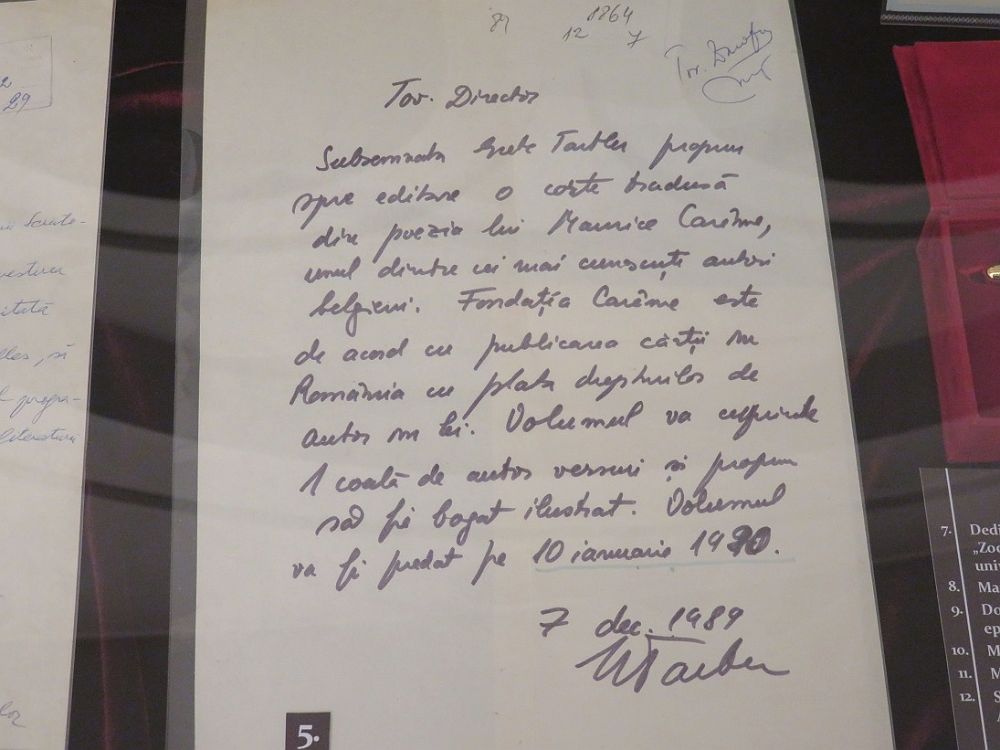 1864
12 7
Tov.
Tov. Director
Subsemnata Grete Tartler propun
spre editare o carte tradusă
din poezia lui Maurice Carême,
unul dintre cei mai cunoscuți autori
belgieni. Fondația Carême este
de acord cu publicarea cărții în
România cu plata drepturilor de
autor în lei. Volumul va cuprinde
1 coală de autor versuri și propun
să fie bogat ilustrat. Volumul
va fi predat pe 10 ianuarie 1990.
7 dec. 1989
GTartler
5.
2
29
itată
și
propa-
literatura
7. Dedi
„Zoo
univ
8. Ma
9. Do
ep
10. M
11. M
12. S